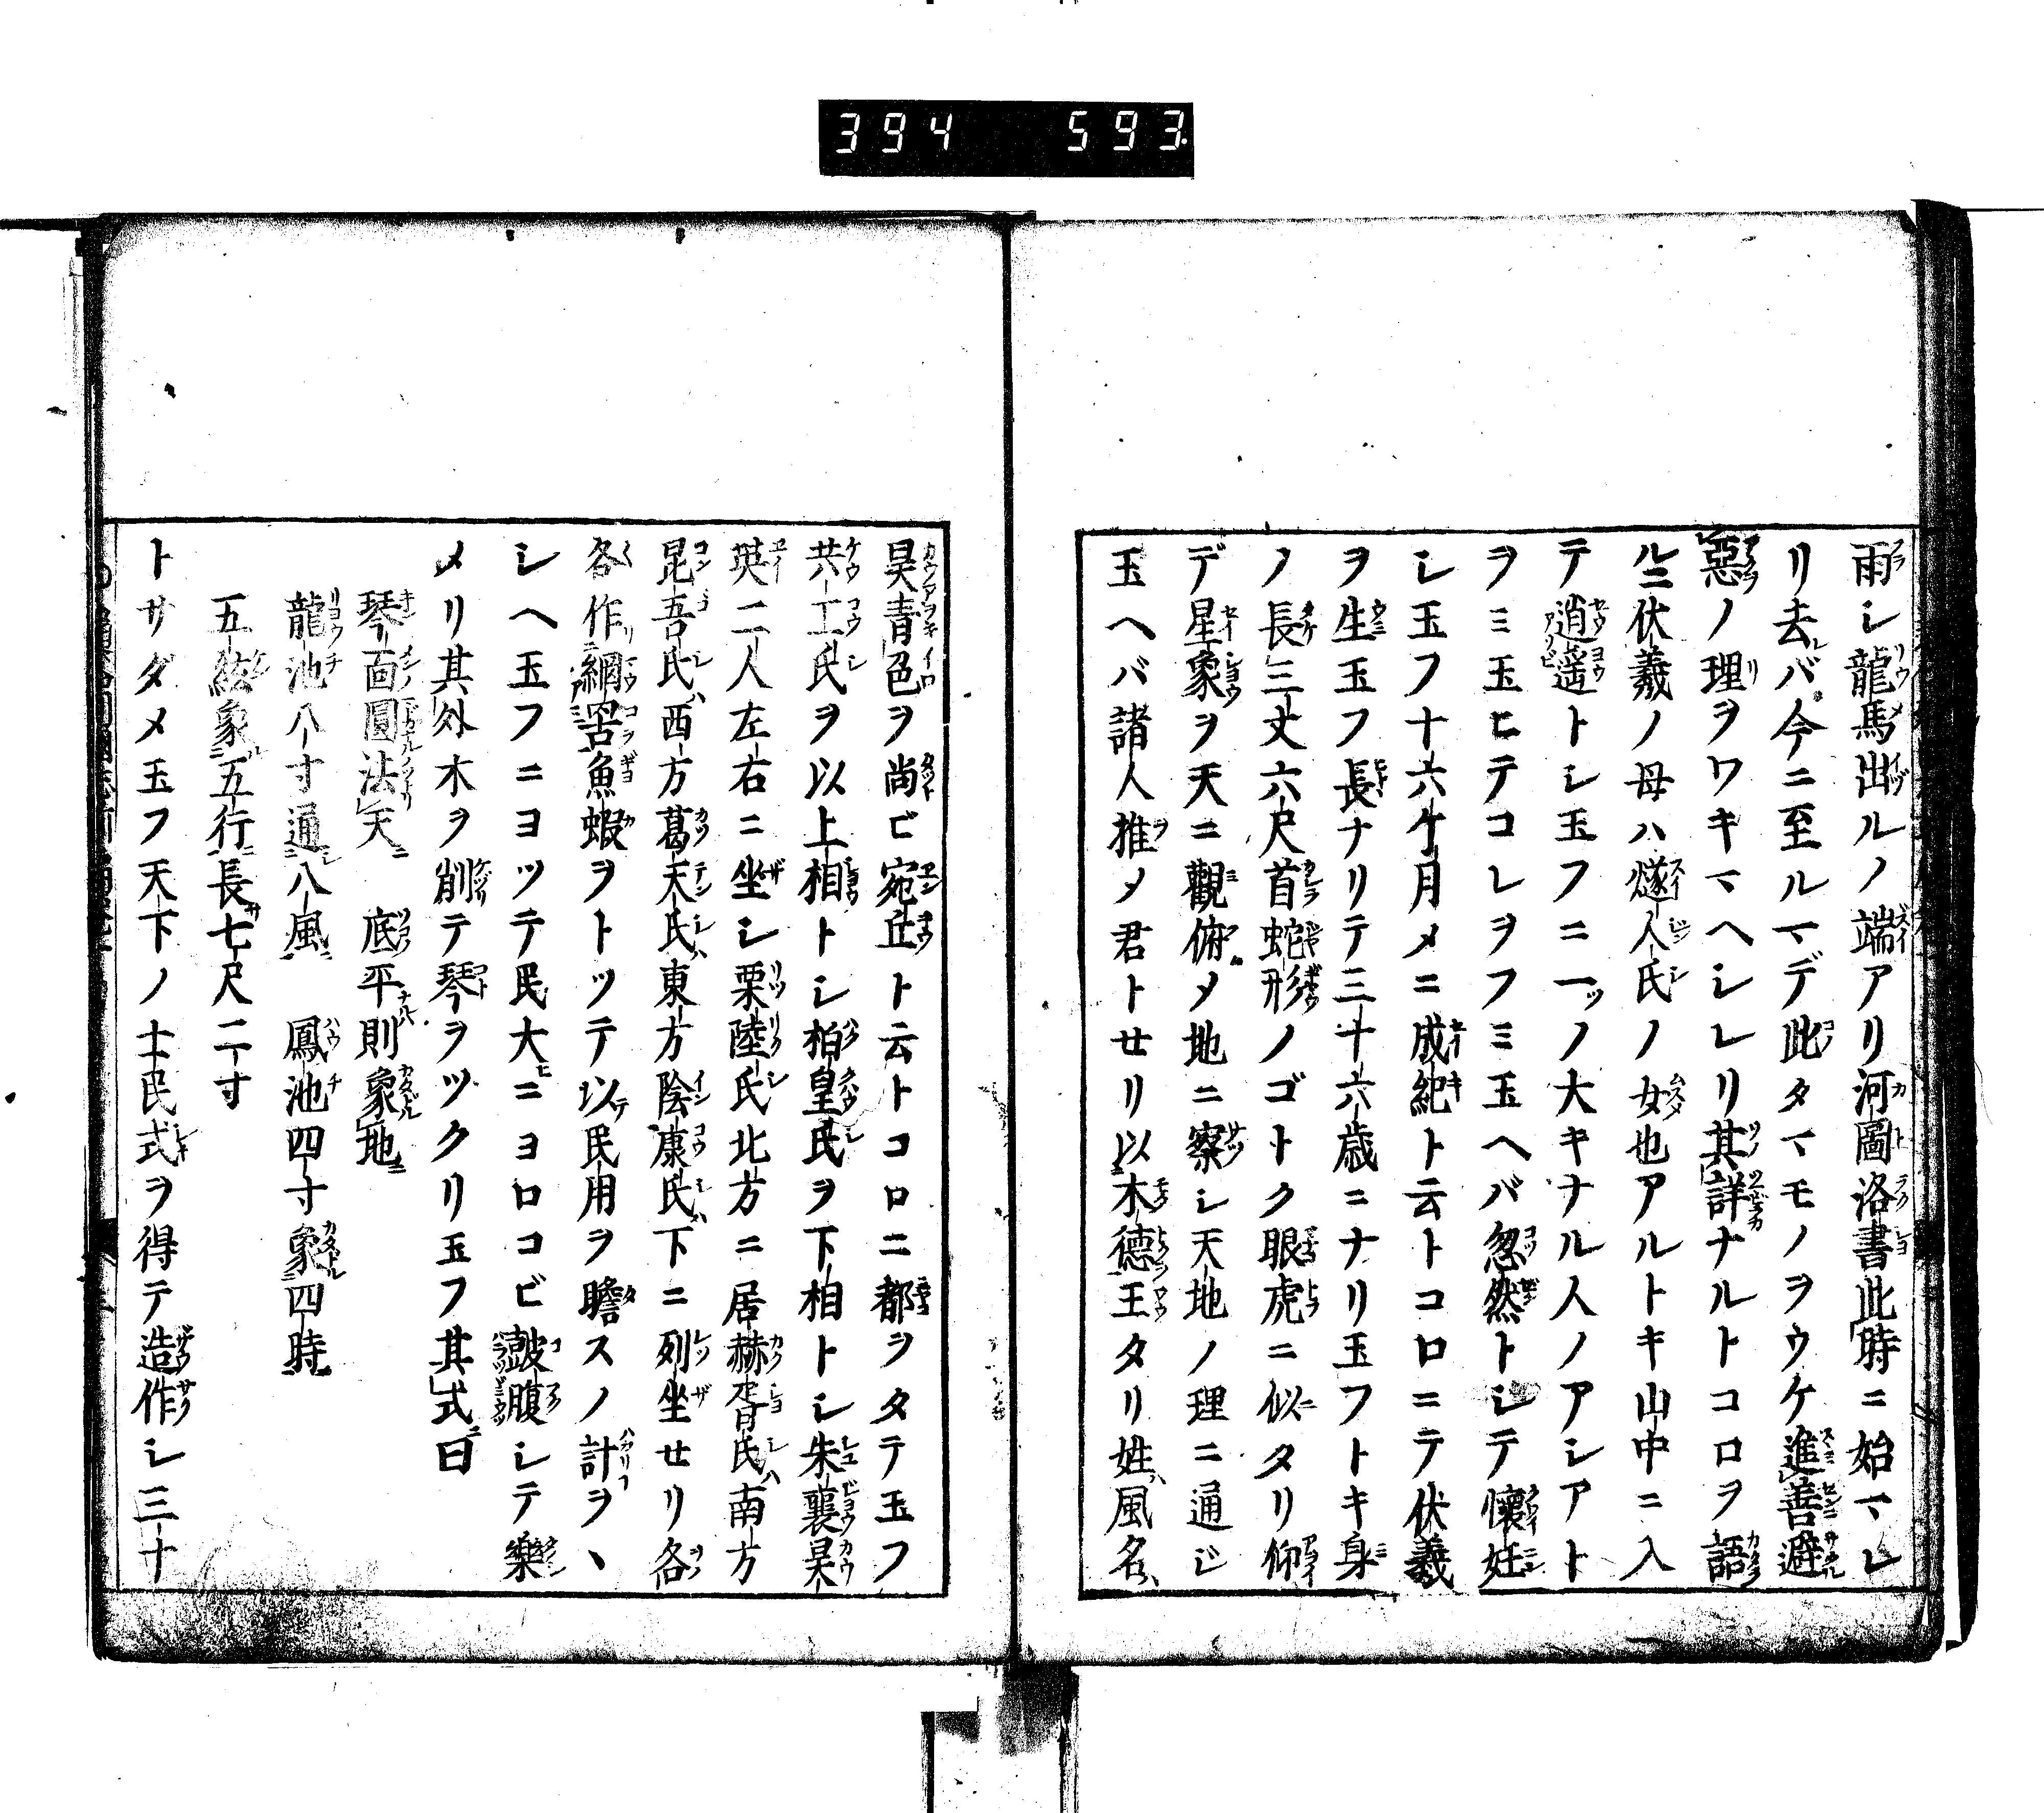 394 593
雨シ龍馬出ルノ端アリ河圖洛書此時ニ始マレ
リ去バ今ニ至ルマデ此タマモノヲウケ進善避
惡ノ理ヲワキマヘシレリ其詳ナルトコロヲ語
ルニ伏羲ノ母ハ燧人氏ノ女也アルトキ山中ニ入
テ逍遥トシ玉フニ一ツノ大キナル人ノアシアト
ヲミ玉ヒテコレヲフミ玉ヘバ忽然トシテ懷妊
シ玉フ十六ケ月メニ成紀ト云トコロニテ伏羲
ヲ生玉フ長ナリテ三十六歳ニナリ玉フトキ身
ノ長三丈六尺首蛇形ノゴトク眼虎ニ似タリ仰
デ星象ヲ天ニ觀俯メ地ニ察シ天地ノ理ニ通ジ
玉ヘバ諸人推メ君トセリ以木德王タリ姓ハ風名ハ
昊青色ヲ尚ビ宛丘ト云トコロニ都ヲタテ玉フ
共工氏ヲ以上相トシ柏皇氏ヲ下相トシ朱襄昊
英二人左右ニ坐シ栗陸氏北方ニ居赫胥氏ハ南方
昆吾氏ハ西方葛天氏ハ東方陰康氏ハ下ニ列坐セリ各
各作網罟魚蝦ヲトツテ以テ民用ヲ贍スノ計ヲヽ
シヘ玉フニヨツテ民大ニヨロコビ皷腹シテ樂
メリ其外木ヲ削テ琴ヲツクリ玉フ其式ニ曰
琴面圓法天 底平則象地
龍池八寸通八風 鳳池四寸象四時
五絃象五行長七尺二寸
トサダメ玉フ天下ノ士民式ヲ得テ造作シ三十